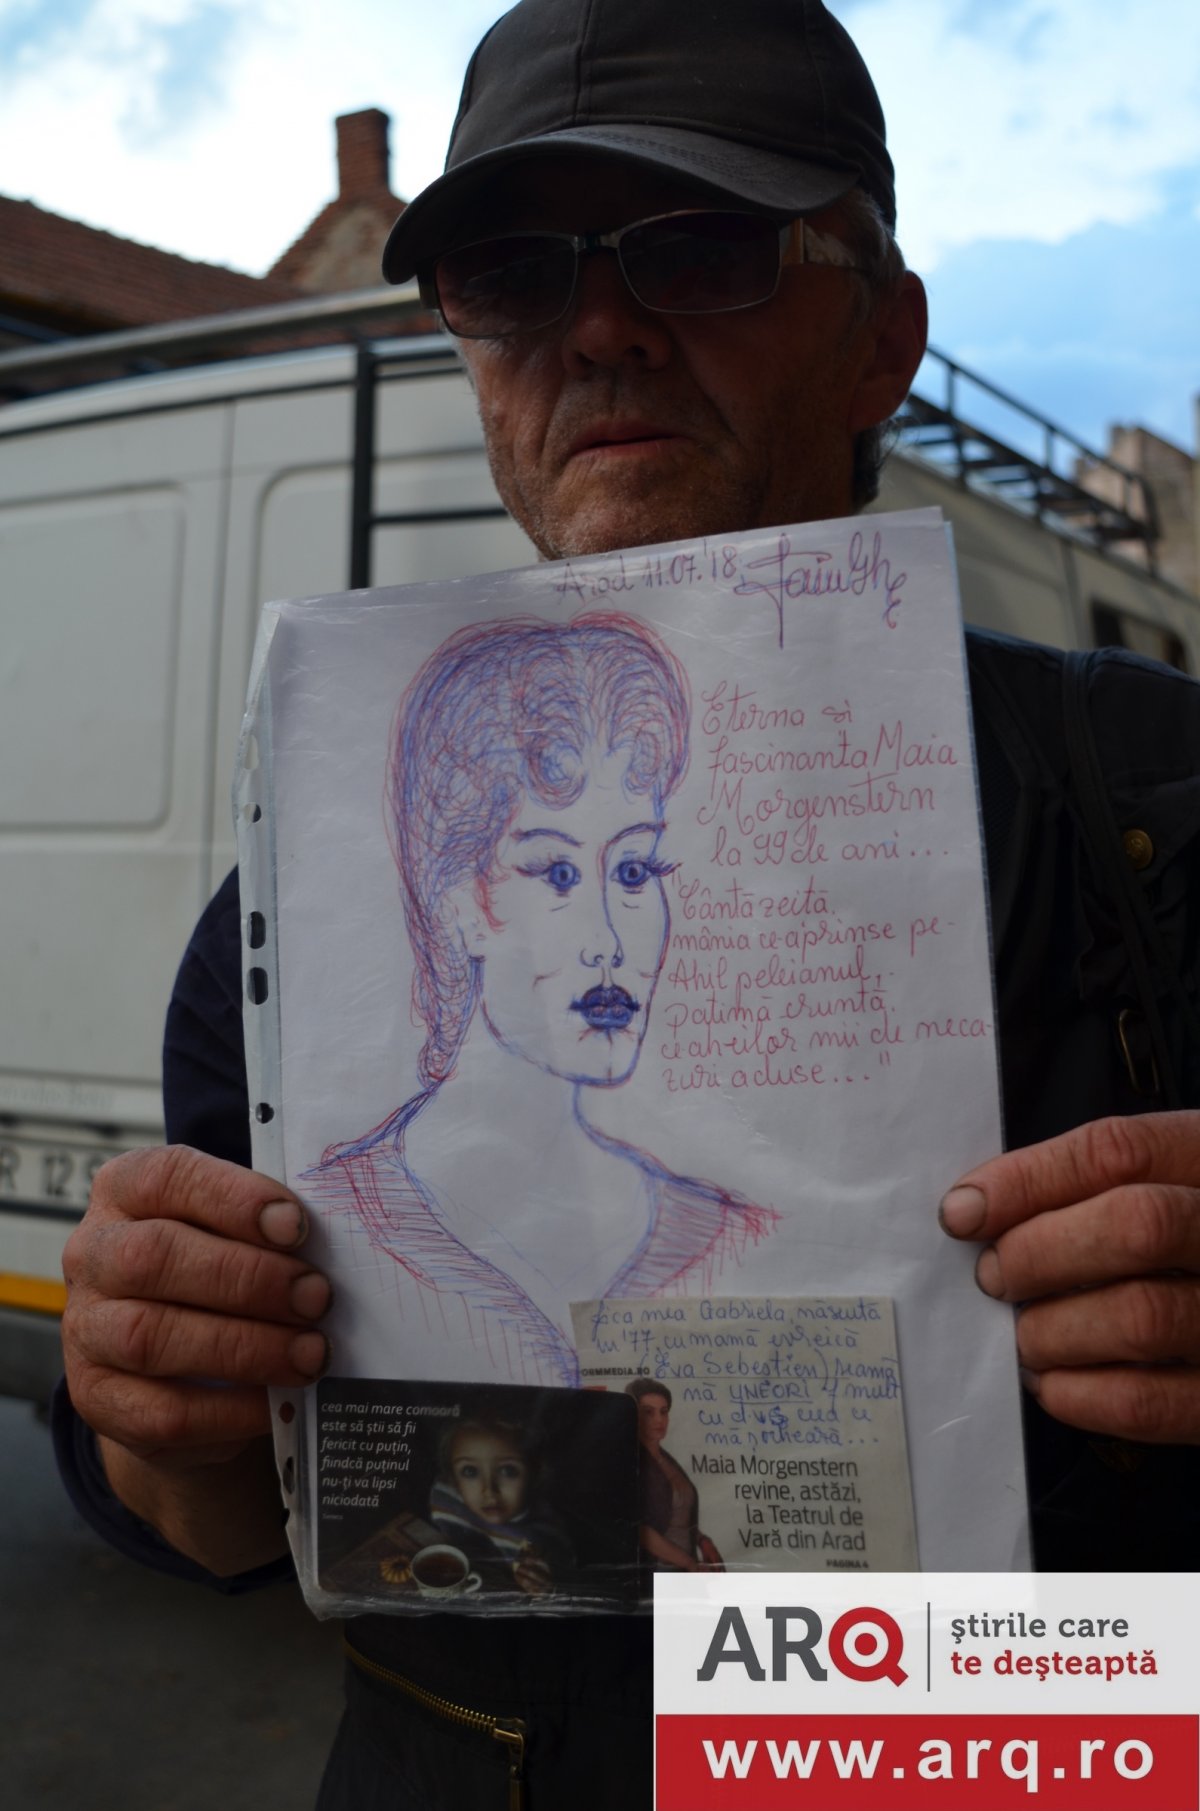 Arad 11.07.'18
Eterna si
fascinanta Maia
Morgenstern
la 99 de ani...
"Cântă zeită,
mânia ce-aprinse pe-
Ahil peleianul,
patimă cruntă,
ce-ah-eilor mii de neca-
zuri aduse..."
fica mea Gabriela, născută
în '77, cu mamă evreică
(Eva Sebestien), seamă
nă UNEORI f mult
cu
mă
Maia Morgenstern
revine, astăzi,
la Teatrul de
Vară din Arad
PAGINA 4
cea mai mare comoară
este să știi să fii
fericit cu puțin,
fiindcă puținul
nu-ți va lipsi
niciodată
Seneca
R 12
ARQ
știrile care
te deșteaptă
www.arq.ro